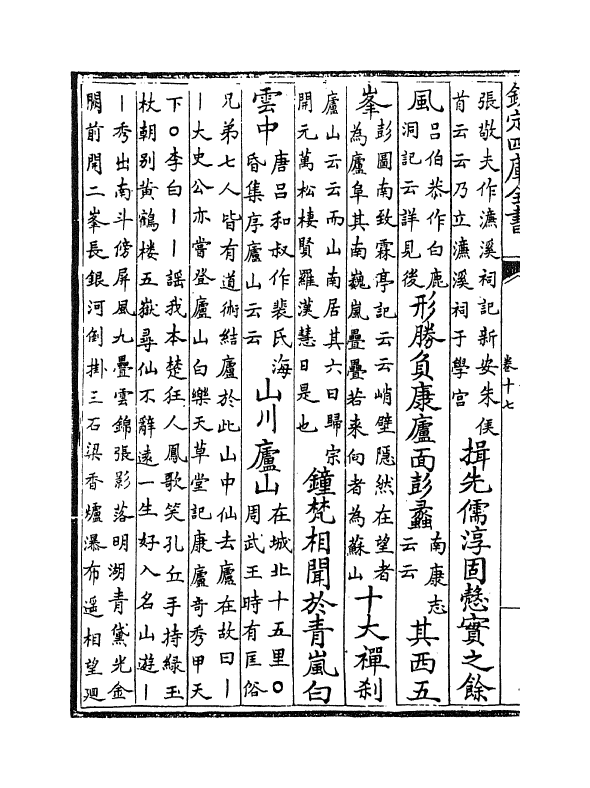 欽定四庫全書
卷十七
張敬夫作濂溪祠記新安朱侯
首云云乃立濂溪祠于學宮
揖先儒淳固慤實之餘
風
呂伯恭作白鹿
洞記云詳見後
形勝負康廬面彭蠡
南康志
云云
其西五
峯
彭圖南致霖亭記云云峭壁隱然在望者
為廬阜其南巍嵐疊疊若来向者為蘇山
十大禪刹
廬山云云而山南居其六曰歸宗
開元萬松棲賢羅漢慧日是也
鐘梵相聞於青嵐白
雲中
唐呂和叔作裴氏海
昏集序廬山云云
山川廬山
在城北十五里○
周武王時有匡俗
兄弟七人皆有道術結廬於此山中仙去廬在故曰丨
丨大史公亦嘗登廬山白樂天草堂記康廬奇秀甲天
下○李白丨丨謡我本楚狂人鳳歌笑孔丘手持緑玉
杖朝别黄鶴樓五嶽尋仙不辭逺一生好入名山遊丨
丨秀出南斗傍屏風九疊雲錦張影落明湖青黛光金
闕前開二峯長銀河倒掛三石梁香爐瀑布遥相望廻